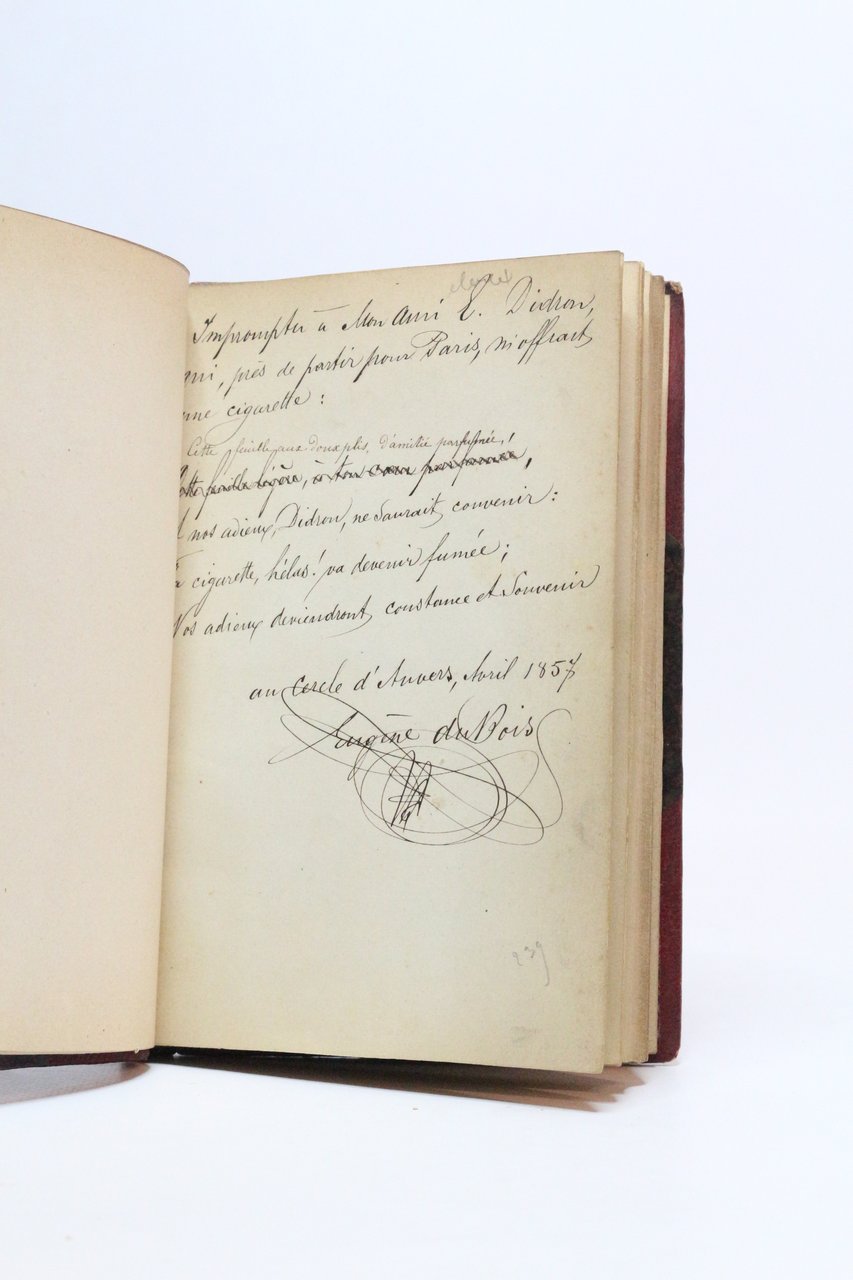 Impromptu à Mon Ami E. Didron,
qui, près de partir pour Paris, m'offrait
une cigarette :
Cette feuille aux doux plis, d'amitié parfumée,
Cette feuille légère, à ton cœur parfumée,
A nos adieux, Didron, ne Saurait convenir :
La cigarette, hélas ! va devenir fumée ;
Nos adieux deviendront constance et Souvenir
au Cercle d'Anvers, Avril 1857
Eugène du Bois
239